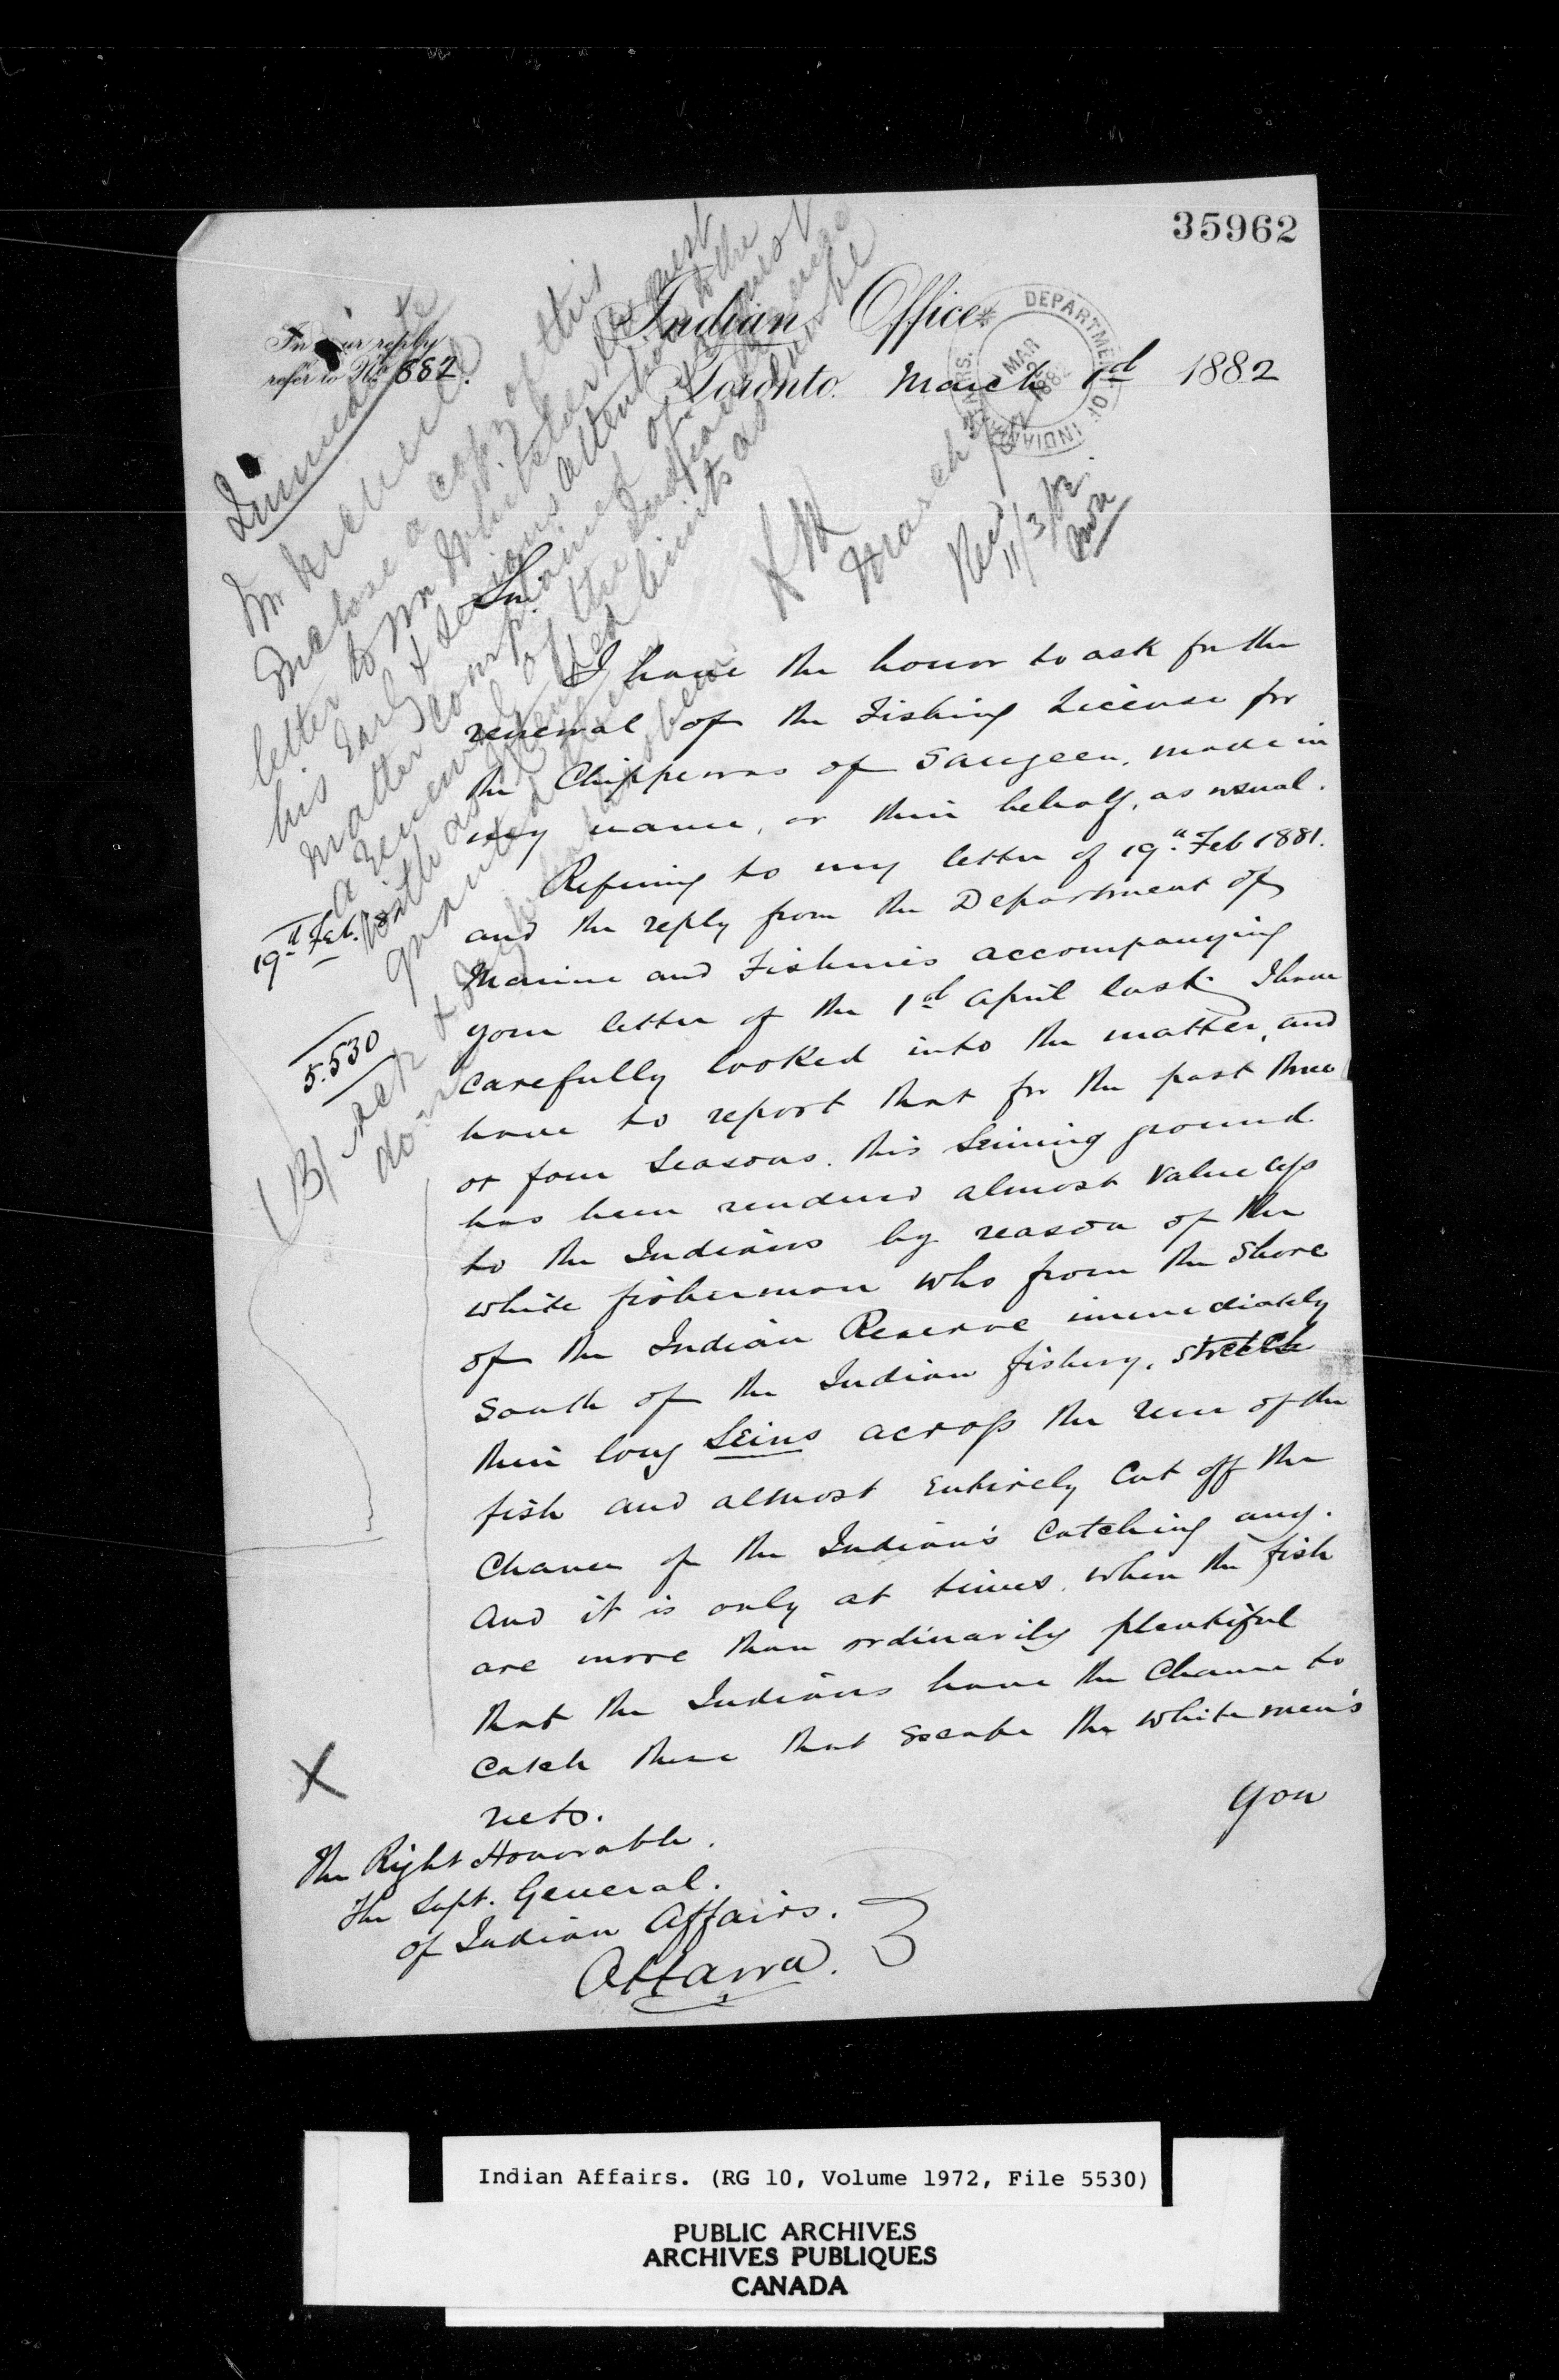 35962
Indian Office
DEPARTMENT OF INDIAN AFFAIRS.
MAR 2 1882
In your reply
refer to No. 882.
Toronto. March 1st 1882
Immediate
Enclose a copy of this
letter to Mr Whitcher & request
his early & serious attention to the
matter complained of & request
a renewal of the Indian license
with as
granted limits as
March
Recd
11/3/82
Sir.
I have the honor to ask for the
renewal of the Fishing License for
the Chippewas of Saugeen, made in
my name, or their behalf, as usual.
Refering to my letter of 19th Feb 1881.
and the reply from the Department of
Marine and Fisheries accompanying
your letter of the 1st April last. I have
carefully looked into the matter, and
have to report that for the past three
or four seasons. this Seining ground
has been rendered almost valueless
to the Indians by reason of the
white fisherman who from the Shore
of the Indian Reserve immediately
South of the Indian fishery, stretch
their long Seins across the run of the
fish and almost entirely Cut off the
Chance of the Indian's Catching any.
And it is only at times when the fish
are more than ordinarily plentiful
that the Indians have the Chance to
Catch those that escape the white men's
nets.
19th Feb.
5.530
X
you
The Right Honorable.
The Supt. General.
of Indian Affairs.
Ottawa.
Indian Affairs. (RG 10, Volume 1972, File 5530)
PUBLIC ARCHIVES
ARCHIVES PUBLIQUES
CANADA